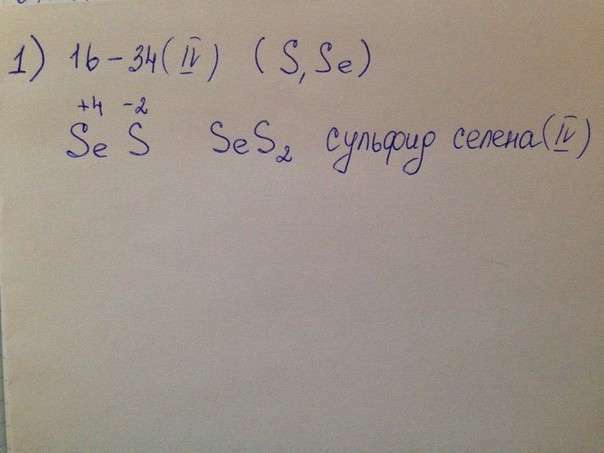 1) 16-34(IV) (S, Se)
+4 -2
Se S SeS₂ сульфид селена(IV)